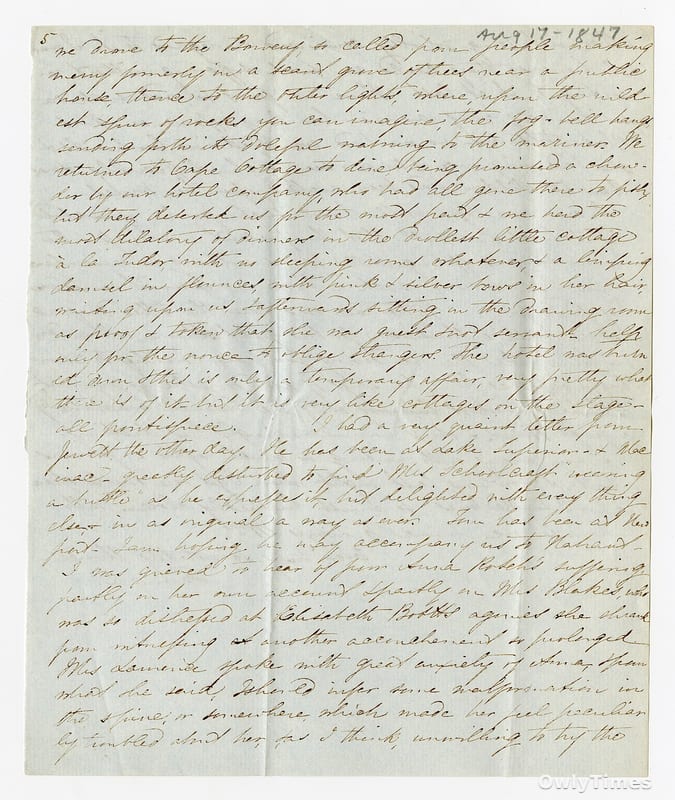 5
Aug 17 - 1847
we drove to the Bowery so called poor people making
merry formerly in a scant grove of trees near a public
house, thence to the Outer lights, where, upon the wild-
est spur of rocks you can imagine, the fog-bell hangs
sending forth its doleful warning to the mariner. We
returned to Cape Cottage to dine, being promised a chow-
der by our hotel company, who had all gone there to fish,
but they deserted us for the most part & we had the
most dilatory of dinners in the drollest little cottage
à la Tudor with no sleeping rooms whatever, & a limping
damsel in flounces with pink & silver bows in her hair,
waiting upon us & afterwards sitting in the drawing room
as proof & token that she was guest & not servant help
only for the nonce to oblige strangers. The hotel was burn
ed down & this is only a temporary affair, very pretty what
there is of it but it is very like cottages on the stage -
all frontispiece. I had a very quaint letter from
Jewett the other day. He has been at Lake Superior &
inac - greatly disturbed to find Mrs Schoolcraft "wearing
a bustle" as he expresses it, but delighted with every thing
else & in as original a way as ever. Tom has been at New
port. I am hoping he may accompany us to Nahant -
I was grieved to hear of poor Anna suffering
partly on her own account & partly on Mrs Blake's, who
was so distressed at Elisabeth agonies she shrank
from witnessing another accouchement so prolonged
Mrs Lawrence spoke with great anxiety of Anna & from
what she said, I should infer some malformation in
the spine, or somewhere, which made her feel peculiar
ly troubled about her, as I think, unwilling to try the
OwlyTimes